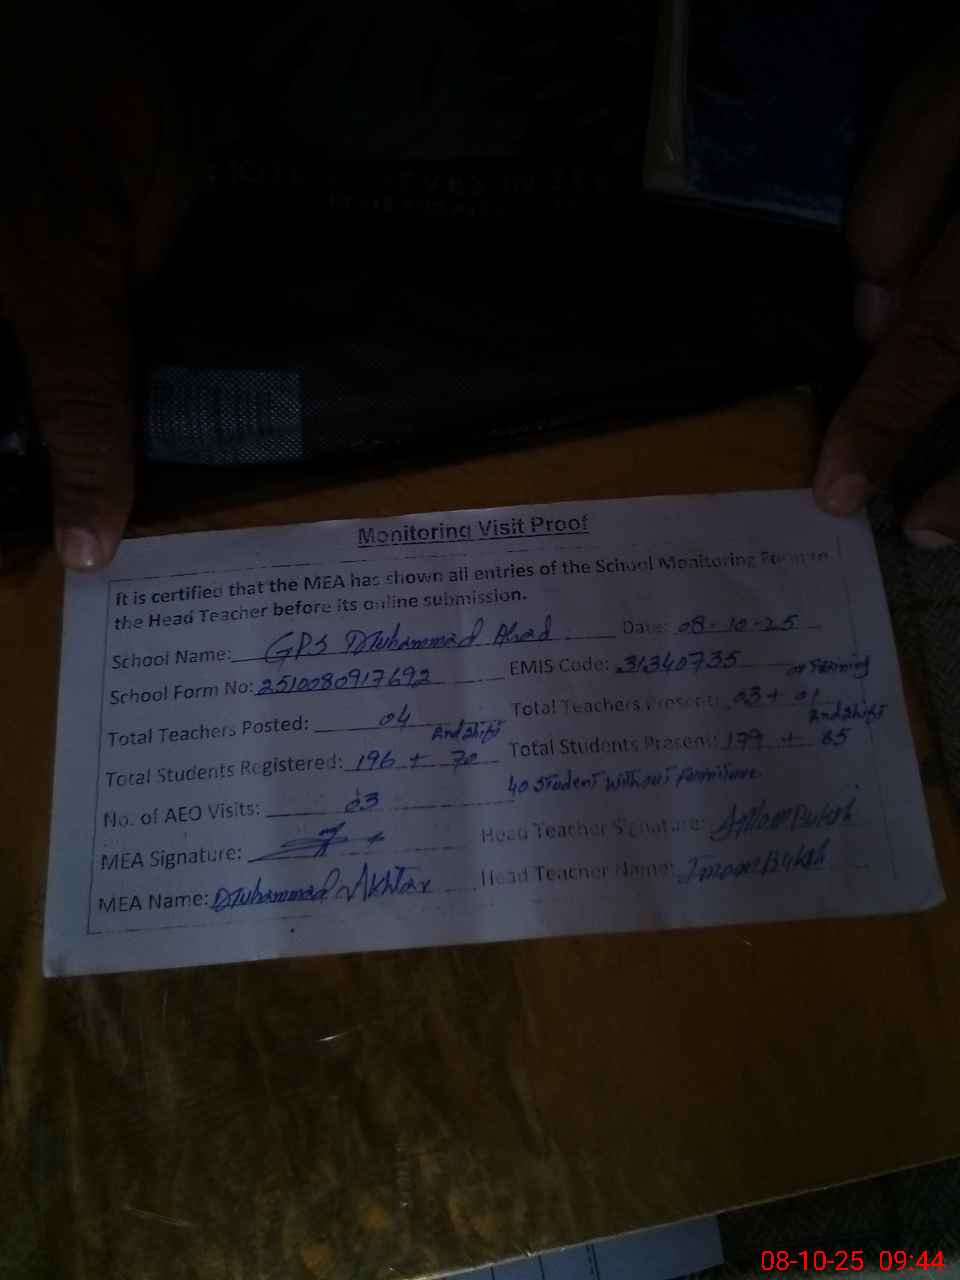 Monitoring Visit Proof
It is certified that the MEA has shown all entries of the School Monitoring Form to
the Head Teacher before its online submission.
School Name: GPS Muhammad Ahad Date: 08-10-25
School Form No: 2510080917692 EMIS Code: 31340735
on Training
Total Teachers Posted: 04 Total Teachers Present: 03 + 01
2nd Shift 2nd Shift
Total Students Registered: 196 + 70 Total Students Present: 179 + 65
40 Student without furniture
No. of AEO Visits: 03
MEA Signature: Head Teacher Signature:
MEA Name: Muhammad Akhtar Head Teacher Name: Imam Bukhsh
08-10-25 09:44